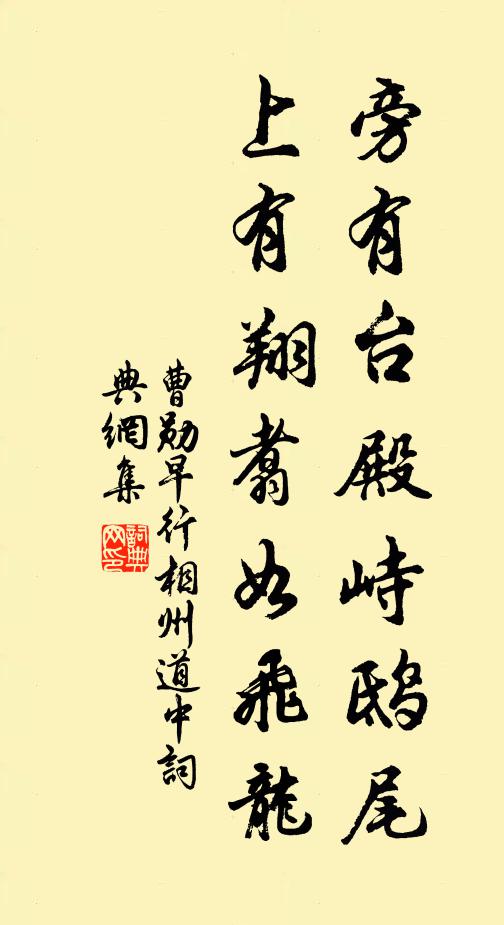 旁有台殿峙鴟尾
上有翔翥如飛龍
曹勛早行相州道中詞
典網集
詞典
网印